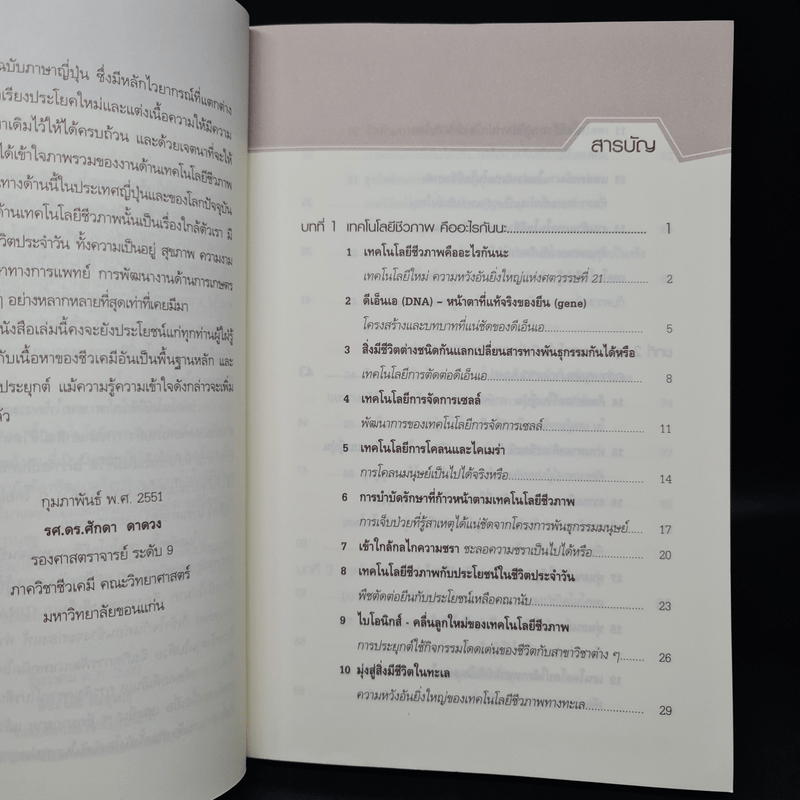 ฉบับภาษาญี่ปุ่น ซึ่งมีหลักไวยากรณ์ที่แตกต่าง
เรียงประโยคใหม่และแต่งเนื้อความให้มีความ
เดิมไว้ให้ได้ครบถ้วน และด้วยเจตนาที่จะให้
ได้เข้าใจภาพรวมของงานด้านเทคโนโลยีชีวภาพ
ทางด้านนี้ในประเทศญี่ปุ่นและของโลกปัจจุบัน
ด้านเทคโนโลยีชีวภาพนั้นเป็นเรื่องใกล้ตัวเรา มี
ชีวิตประจำวัน ทั้งความเป็นอยู่ สุขภาพ ความงาม
ทางการแพทย์ การพัฒนางานด้านการเกษตร
ๆ อย่างหลากหลายที่สุดเท่าที่เคยมีมา
หนังสือเล่มนี้คงจะยังประโยชน์แก่ทุกท่านผู้ใฝ่รู้
กับเนื้อหาของชีวเคมีอันเป็นพื้นฐานหลัก และ
ประยุกต์ แม้ความรู้ความเข้าใจดังกล่าวจะเพิ่ม
ล้ว
กุมภาพันธ์ พ.ศ. 2551
รศ.ดร.ศักดา ดาดวง
รองศาสตราจารย์ ระดับ 9
ภาควิชาชีวเคมี คณะวิทยาศาสตร์
มหาวิทยาลัยขอนแก่น
สารบัญ
บทที่ 1 เทคโนโลยีชีวภาพ คืออะไรกันนะ 1
1 เทคโนโลยีชีวภาพคืออะไรกันนะ
เทคโนโลยีใหม่ ความหวังอันยิ่งใหญ่แห่งศตวรรษที่ 21 2
2 ดีเอ็นเอ (DNA) – หน้าตาที่แท้จริงของยีน (gene)
โครงสร้างและบทบาทที่แน่ชัดของดีเอ็นเอ 5
3 สิ่งมีชีวิตต่างชนิดกันแลกเปลี่ยนสารทางพันธุกรรมกันได้หรือ
เทคโนโลยีการตัดต่อดีเอ็นเอ 8
4 เทคโนโลยีการจัดการเซลล์
พัฒนาการของเทคโนโลยีการจัดการเซลล์ 11
5 เทคโนโลยีการโคลนและไคเมร่า
การโคลนมนุษย์เป็นไปได้จริงหรือ 14
6 การบำบัดรักษาที่ก้าวหน้าตามเทคโนโลยีชีวภาพ
การเจ็บป่วยที่รู้สาเหตุได้แน่ชัดจากโครงการพันธุกรรมมนุษย์ 17
7 เข้าใกล้กลไกความชรา ชะลอความชราเป็นไปได้หรือ 20
8 เทคโนโลยีชีวภาพกับประโยชน์ในชีวิตประจำวัน
พืชตัดต่อยีนกับประโยชน์เหลือคณานับ 23
9 ไบโอนิกส์ - คลื่นลูกใหม่ของเทคโนโลยีชีวภาพ
การประยุกต์ใช้กิจกรรมโดดเด่นของชีวิตกับสาขาวิชาต่าง ๆ 26
10 มุ่งสู่สิ่งมีชีวิตในทะเล
ความหวังอันยิ่งใหญ่ของเทคโนโลยีชีวภาพทางทะเล 29